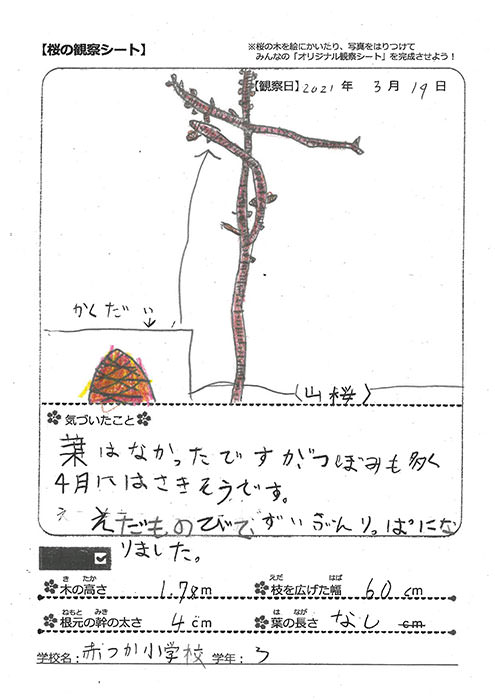 【桜の観察シート】
※桜の木を絵にかいたり、写真をはりつけて
みんなの「オリジナル観察シート」を完成させよう!
【観察日】2021年 3月 19日
かくだい
(山桜)
気づいたこと
葉はなかったですがつぼみも多く
4月にはさきそうです。
えだものびてずいぶんりっぱにな
りました。
木の高さ 1.78m
枝を広げた幅 60cm
根元の幹の太さ 4cm
葉の長さ なし cm
学校名:赤つか小学校 学年:3